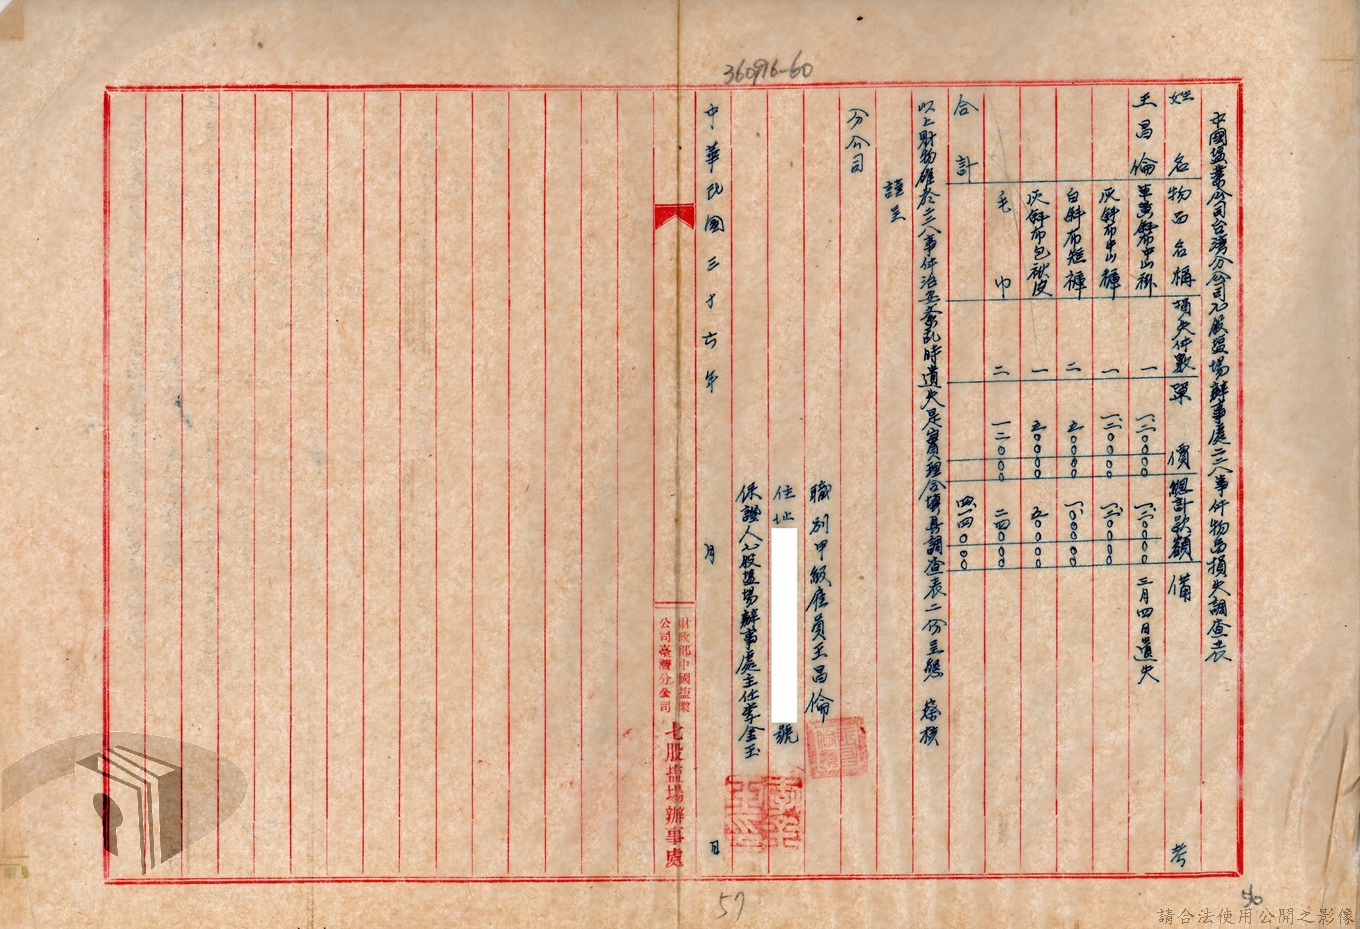 360916-60
中國塩業公司台湾分公司七股塩場辦事處二二八事件物品損失調查表
姓名 物品名稱 損失件數 單價 總計款額 備考
王昌倫 草黃斜布中山褂 一 一、二〇〇〇〇 一、二〇〇〇〇 三月四日遺失
灰斜布中山褲 一 一、二〇〇〇〇 一、二〇〇〇〇
白斜布短褲 二 五〇〇〇〇 一、〇〇〇〇〇
灰斜布包袱皮 一 五〇〇〇〇 五〇〇〇〇
毛巾 二 一二〇〇〇 二四〇〇〇
合計 四、一四〇〇〇
以上財物確於二二八事件治安紊乱時遺失是實理合填具調查表二份呈懸 詧核
謹呈
分公司
職別甲級雇員王昌倫
住址 號
保證人七股塩場辦事處主任李金玉
中華民國三十六年 月 日
財政部中國塩業
公司臺灣分公司
七股塩場辦事處
57
請合法使用公開之影像